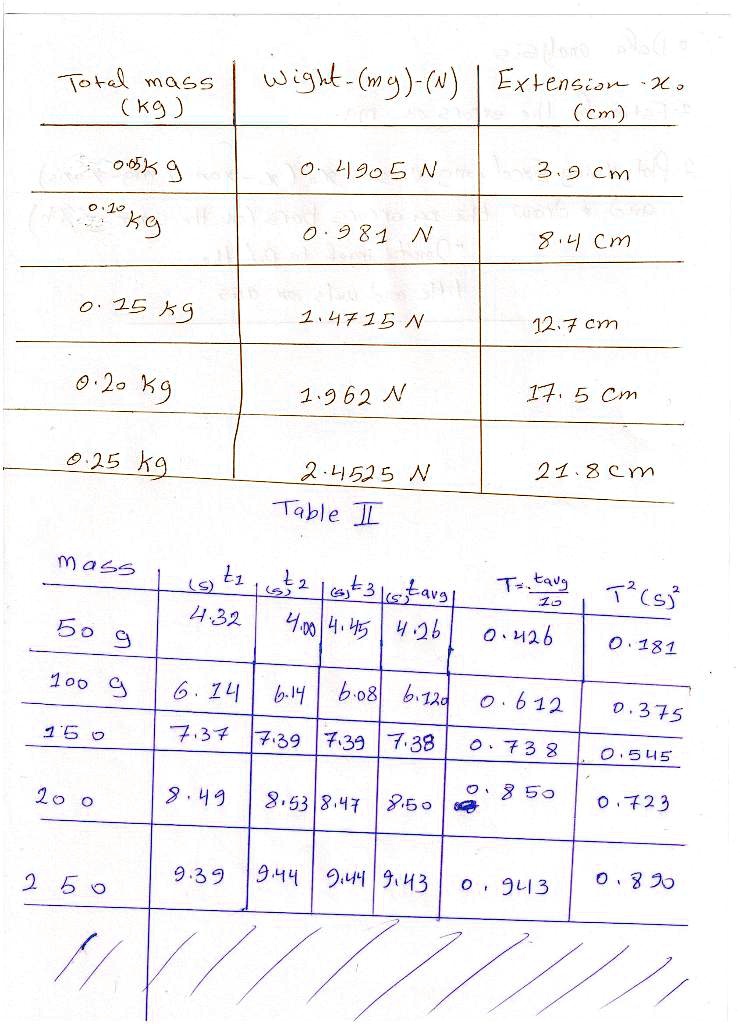 Total mass (kg) | Wight-(mg)-(N) | Extension x₀ (cm)
0.05 kg | 0.4905 N | 3.9 cm
0.10 kg | 0.981 N | 8.4 cm
0.15 kg | 1.4715 N | 12.7 cm
0.20 kg | 1.962 N | 17.5 cm
0.25 kg | 2.4525 N | 21.8 cm
Table II
mass | (s) t1 | (s) t2 | (s) t3 | (s) tavg | T= tavg/10 | T² (s)²
50 g | 4.32 | 4.00 | 4.45 | 4.26 | 0.426 | 0.181
100 g | 6.14 | 6.14 | 6.08 | 6.120 | 0.612 | 0.375
150 | 7.37 | 7.39 | 7.39 | 7.38 | 0.738 | 0.545
200 | 8.49 | 8.53 | 8.47 | 8.50 | 0.850 | 0.723
250 | 9.39 | 9.44 | 9.44 | 9.43 | 0.943 | 0.890